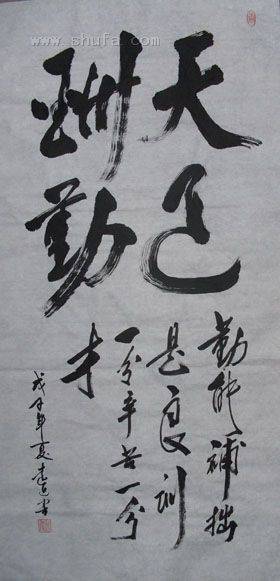 www.shufa.com
天道
酬勤
勤能補拙
是良训
一分辛苦一分
才
戊子年夏